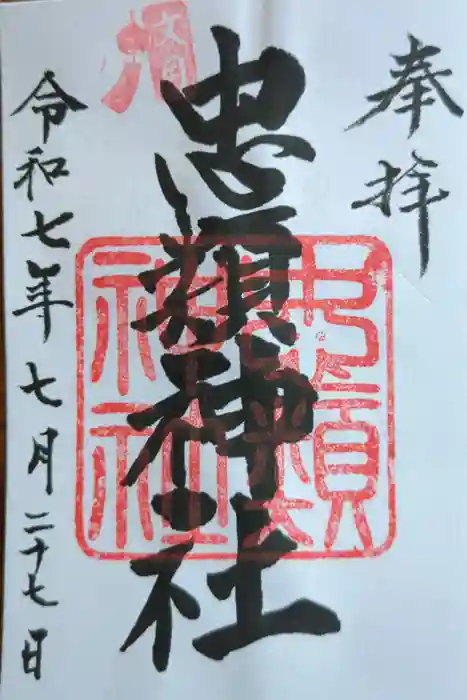 奉拝
忠類神社
忠類神社
文月
令和七年七月二十七日